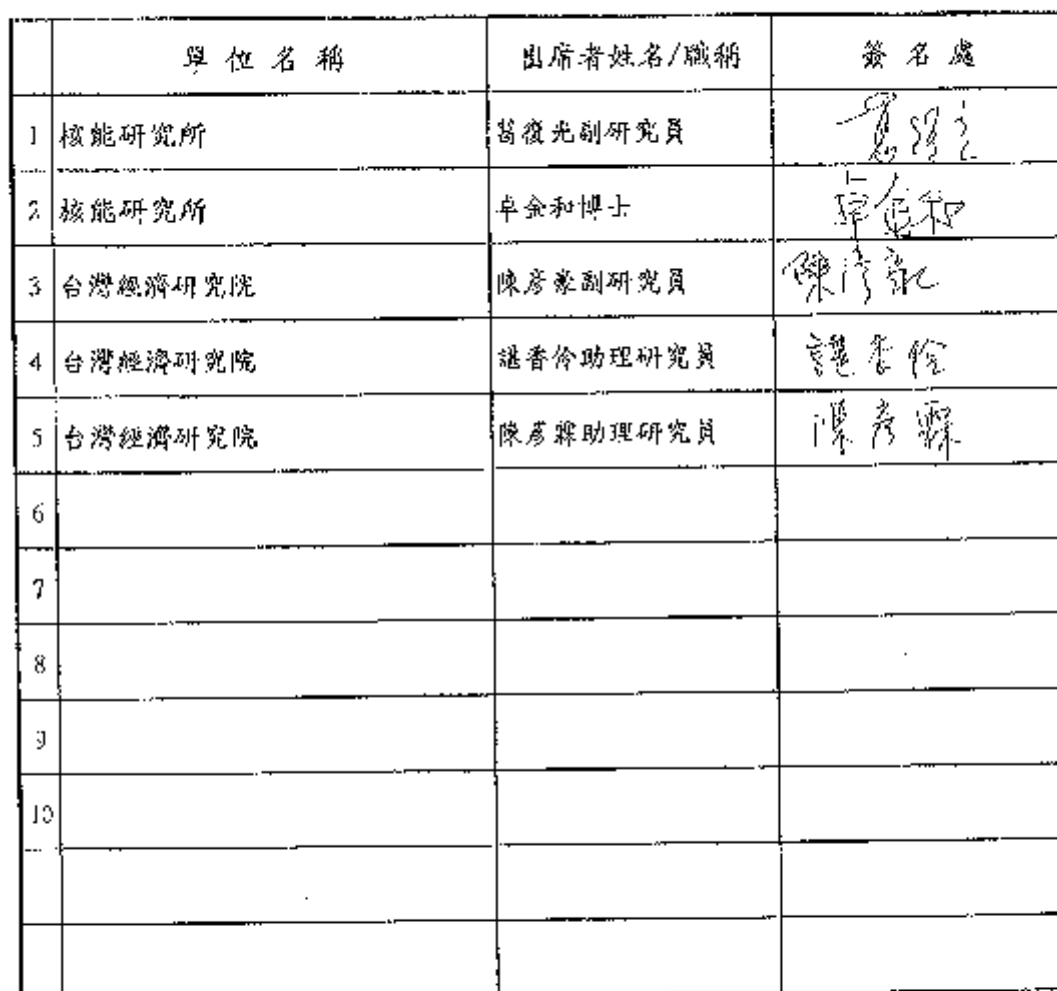 單位名稱 出席者姓名/職稱 簽名處
1 核能研究所 葛復光副研究員
2 核能研究所 卓金和博士 卓金和
3 台灣經濟研究院 陳彥豪副研究員 陳彥豪
4 台灣經濟研究院 諶香伶助理研究員 諶香伶
5 台灣經濟研究院 陳彥霖助理研究員 陳彥霖
6
7
8
9
10